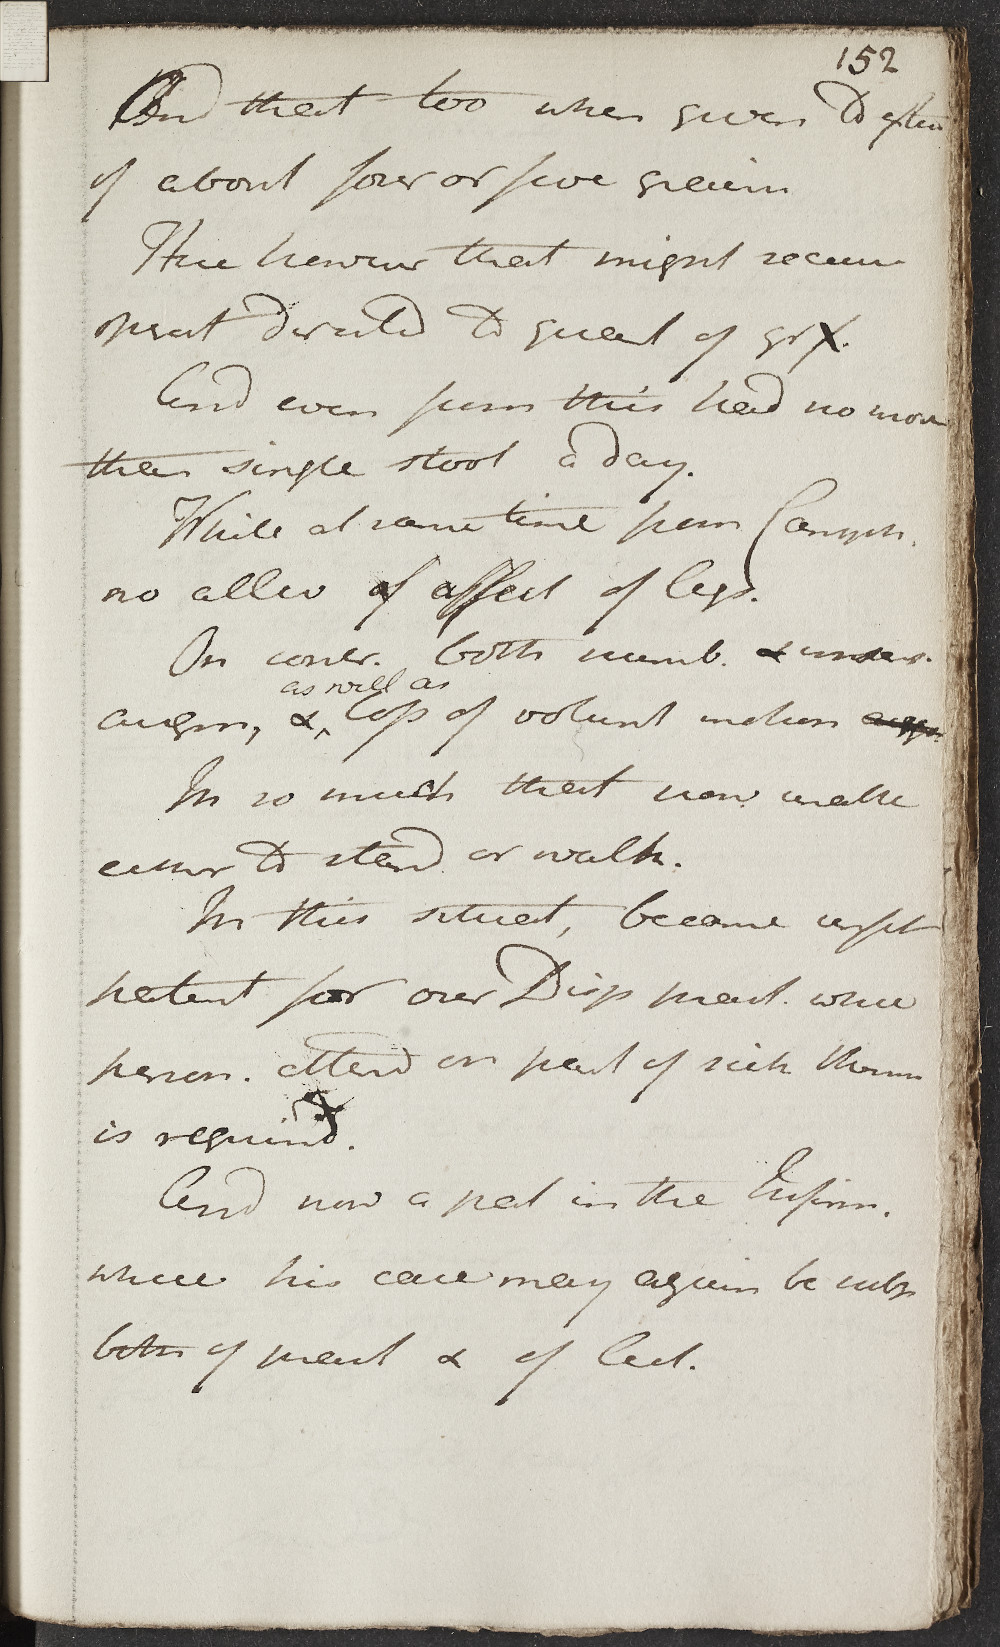 152
And that too when given to exten
of about four or five grains
Here however that might recur
opiat directed to quant of grx.
And even from this had no more
than single stool a day.
While at same time from Camph.
no allev of affect of legs.
On contr. both numb.
augm, & as well as loss of volunt motion
In so much that now unable
either to stand or walk.
In this situat, became
patient for our Disp pract. where
person. attend on part of sick
is required.
And now a pat in the Infirm.
where his case may again be subj
both of pract & of Lect.